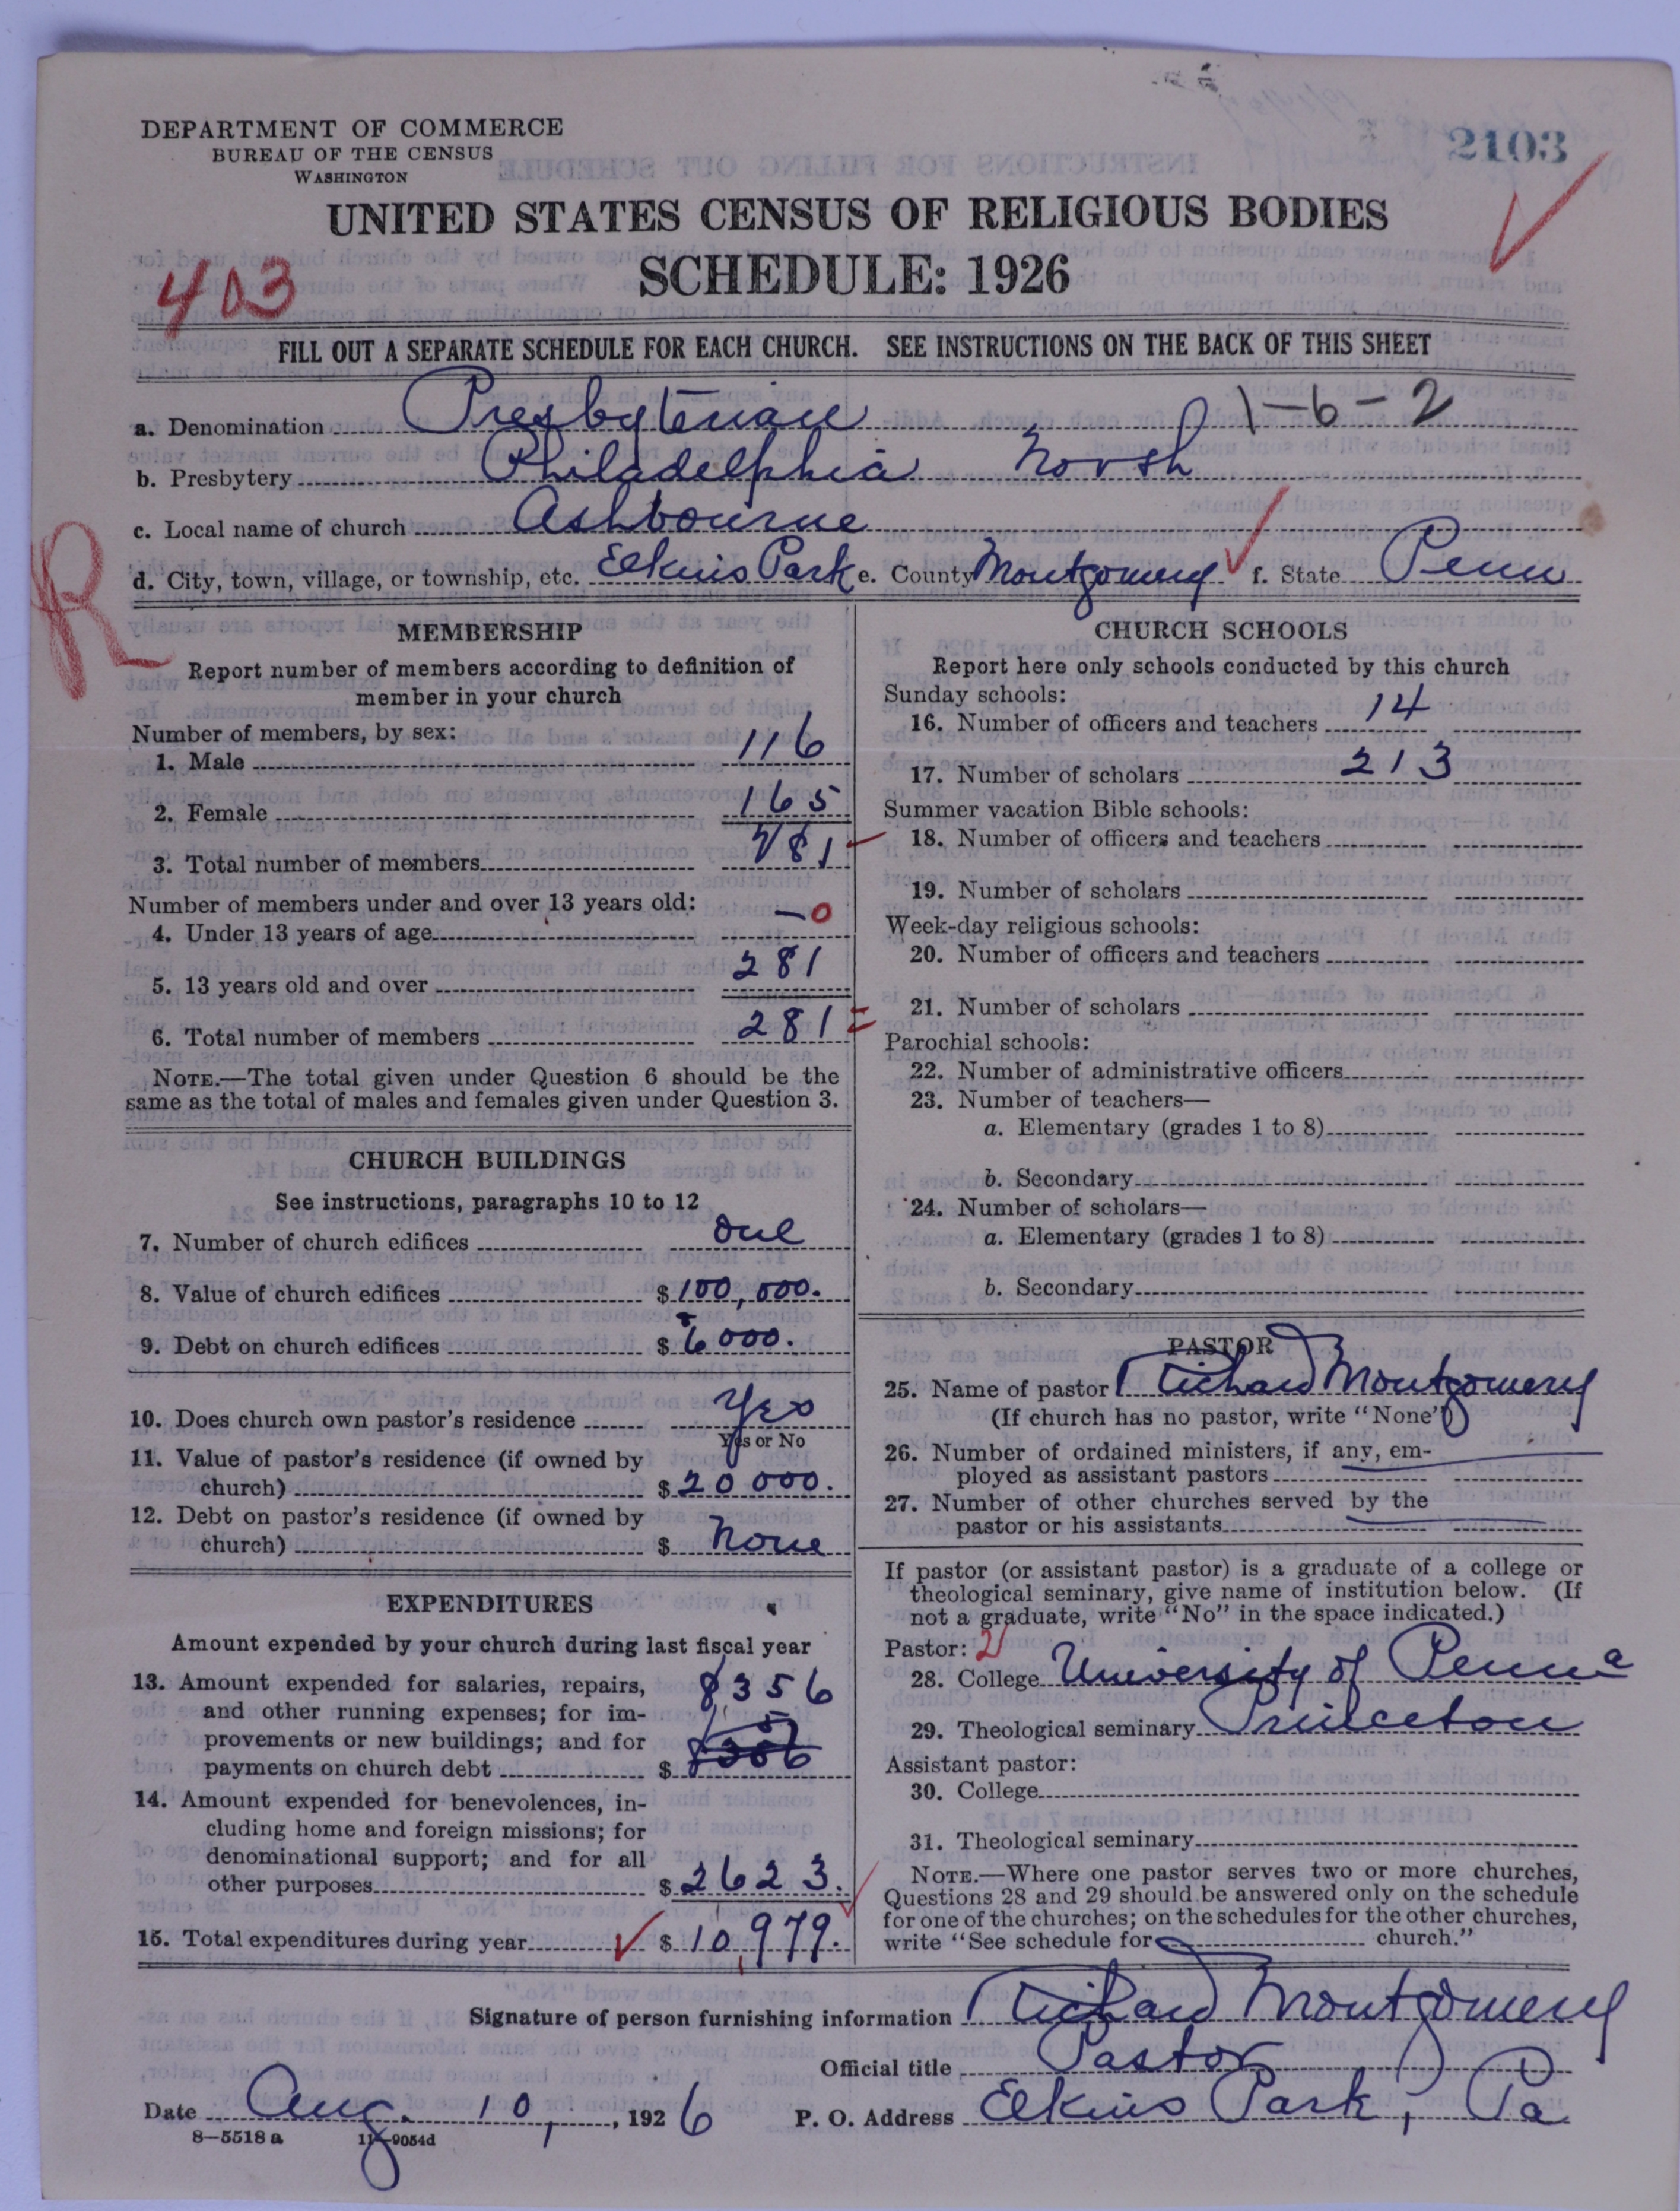 DEPARTMENT OF COMMERCE
BUREAU OF THE CENSUS
WASHINGTON
2103
UNITED STATES CENSUS OF RELIGIOUS BODIES
SCHEDULE: 1926
403
FILL OUT A SEPARATE SCHEDULE FOR EACH CHURCH. SEE INSTRUCTIONS ON THE BACK OF THIS SHEET
a. Denomination Presbyterian 1-6-2
b. Presbytery Philadelphia North
c. Local name of church Ashbourne
R
d. City, town, village, or township, etc. Elkins Park e. County Montgomery f. State Penn
MEMBERSHIP
Report number of members according to definition of
member in your church
Number of members, by sex:
1. Male 116
2. Female 165
3. Total number of members 281
Number of members under and over 13 years old:
4. Under 13 years of age — 0
5. 13 years old and over 281
6. Total number of members 281
NOTE.—The total given under Question 6 should be the
same as the total of males and females given under Question 3.
CHURCH BUILDINGS
See instructions, paragraphs 10 to 12
7. Number of church edifices One
8. Value of church edifices $ 100,000.
9. Debt on church edifices $ 6000.
10. Does church own pastor's residence Yes
Yes or No
11. Value of pastor's residence (if owned by
church) $ 20000.
12. Debt on pastor's residence (if owned by
church) $ None
EXPENDITURES
Amount expended by your church during last fiscal year
13. Amount expended for salaries, repairs, 8356
and other running expenses; for im-
provements or new buildings; and for
payments on church debt $
14. Amount expended for benevolences, in-
cluding home and foreign missions; for
denominational support; and for all
other purposes $ 2623.
15. Total expenditures during year $ 10,979.
CHURCH SCHOOLS
Report here only schools conducted by this church
Sunday schools:
16. Number of officers and teachers 14
17. Number of scholars 213
Summer vacation Bible schools:
18. Number of officers and teachers
19. Number of scholars
Week-day religious schools:
20. Number of officers and teachers
21. Number of scholars
Parochial schools:
22. Number of administrative officers
23. Number of teachers—
a. Elementary (grades 1 to 8)
b. Secondary
24. Number of scholars—
a. Elementary (grades 1 to 8)
b. Secondary
PASTOR
25. Name of pastor Richard Montgomery
(If church has no pastor, write "None")
26. Number of ordained ministers, if any, em-
ployed as assistant pastors
27. Number of other churches served by the
pastor or his assistants
If pastor (or assistant pastor) is a graduate of a college or
theological seminary, give name of institution below. (If
not a graduate, write "No" in the space indicated.)
Pastor: 2
28. College University of Penna
29. Theological seminary Princeton
Assistant pastor:
30. College
31. Theological seminary
NOTE.—Where one pastor serves two or more churches,
Questions 28 and 29 should be answered only on the schedule
for one of the churches; on the schedules for the other churches,
write "See schedule for church."
Signature of person furnishing information Richard Montgomery
Official title Pastor
Date Aug. 10, 1926 P. O. Address Elkins Park, Pa
8—5518 a 11—9054d